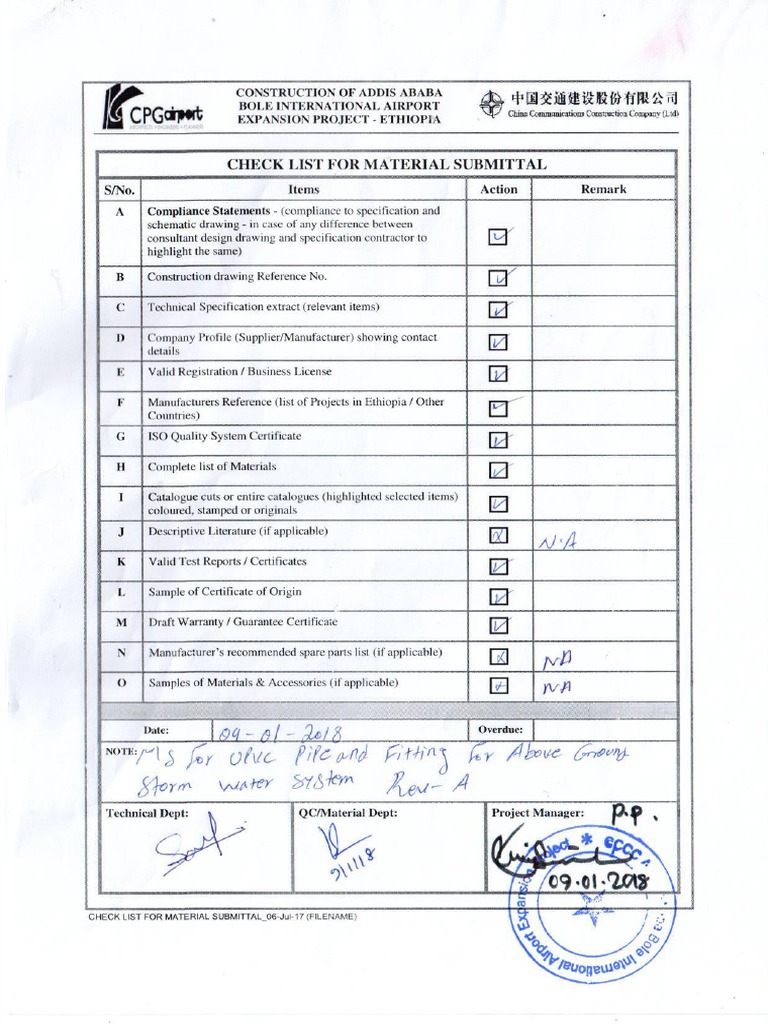 CPG airport
ARCHITECTS • ENGINEERS • PLANNERS
CONSTRUCTION OF ADDIS ABABA
BOLE INTERNATIONAL AIRPORT
EXPANSION PROJECT - ETHIOPIA
中国交通建设股份有限公司
China Communications Construction Company (Ltd)
CHECK LIST FOR MATERIAL SUBMITTAL
S/No. Items Action Remark
A Compliance Statements - (compliance to specification and
schematic drawing - in case of any difference between
consultant design drawing and specification contractor to
highlight the same)
B Construction drawing Reference No.
C Technical Specification extract (relevant items)
D Company Profile (Supplier/Manufacturer) showing contact
details
E Valid Registration / Business License
F Manufacturers Reference (list of Projects in Ethiopia / Other
Countries)
G ISO Quality System Certificate
H Complete list of Materials
I Catalogue cuts or entire catalogues (highlighted selected items)
coloured, stamped or originals
J Descriptive Literature (if applicable) N.A
K Valid Test Reports / Certificates
L Sample of Certificate of Origin
M Draft Warranty / Guarantee Certificate
N Manufacturer's recommended spare parts list (if applicable) NA
O Samples of Materials & Accessories (if applicable) NA
Date: 09-01-2018 Overdue:
NOTE: MS for UPVC Pipe and Fitting for Above Ground
Storm water system Rev-A
Technical Dept: QC/Material Dept: Project Manager: P.P.
9/1/18
09.01.2018
Bole International Airport Expansion Project * CCCC
CHECK LIST FOR MATERIAL SUBMITTAL_06-Jul-17 (FILENAME)